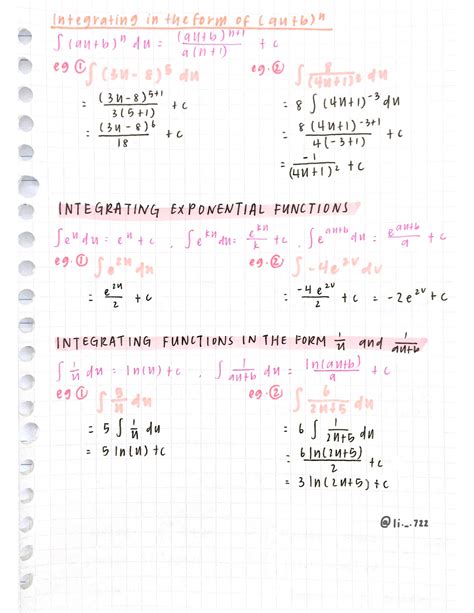 Integrating in the form of (ax+b)ⁿ
∫(ax+b)ⁿ dx = (ax+b)ⁿ⁺¹ / a(n+1) + c
eg ① ∫(3x-8)⁵ dx
= (3x-8)⁵⁺¹ / 3(5+1) + c
= (3x-8)⁶ / 18 + c
eg. ② ∫ 8 / (4x+1)³ dx
= 8 ∫(4x+1)⁻³ dx
= 8(4x+1)⁻³⁺¹ / 4(-3+1) + c
= -1 / (4x+1)² + c
INTEGRATING EXPONENTIAL FUNCTIONS
∫eˣ dx = eˣ + c , ∫eᵏˣ dx = eᵏˣ / k + c , ∫eᵃˣ⁺ᵇ = eᵃˣ⁺ᵇ / a + c
eg. ① ∫e²ˣ dx
= e²ˣ / 2 + c
eg. ② ∫-4e²ᵛ dv
= -4e²ᵛ / 2 + c = -2e²ᵛ + c
INTEGRATING FUNCTIONS IN THE FORM 1/x and 1/ax+b
∫ 1/x dx = ln(x) + c , ∫ 1/ax+b dx = ln(ax+b) / a + c
eg ① ∫ 5/x dx
= 5 ∫ 1/x dx
= 5 ln(x) + c
eg. ② ∫ 6 / 2x+5 dx
= 6 ∫ 1 / 2x+5 dx
= 6 ln(2x+5) / 2 + c
= 3 ln(2x+5) + c
@li._.722